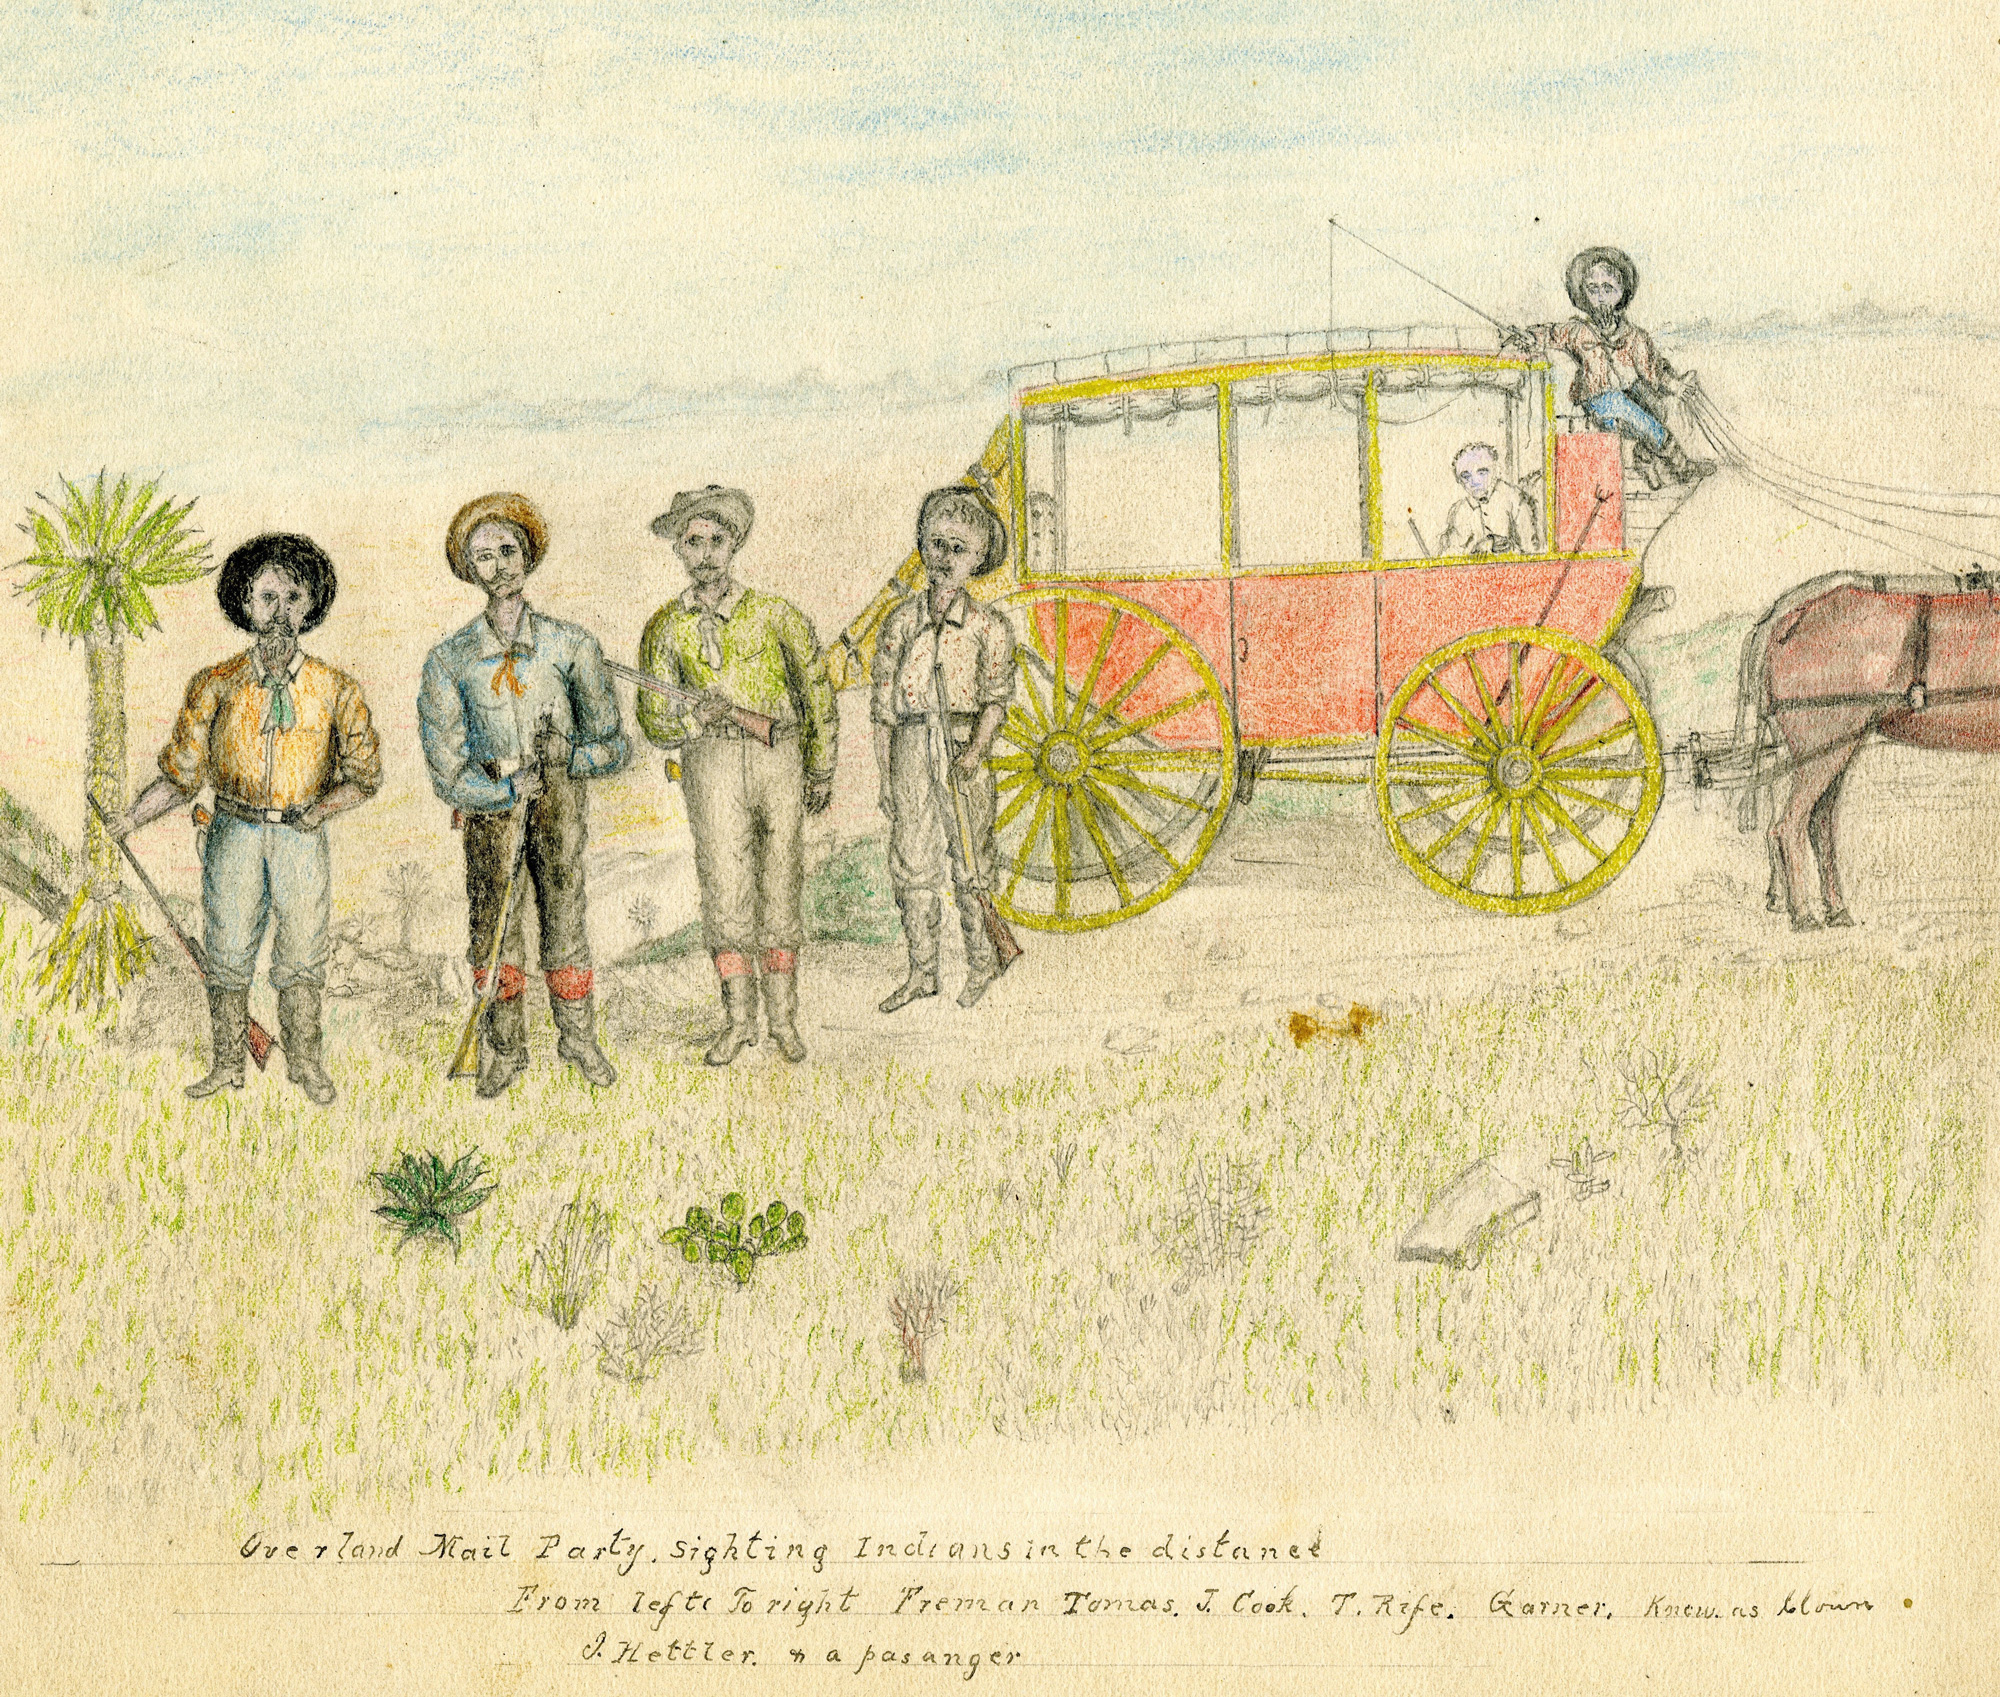 Overland Mail Party. Sighting Indians in the distance
From left To right Freman Tomas. J. Cook. T. Rife. Garner. Know. as Clown
J. Hettler. & a pasanger